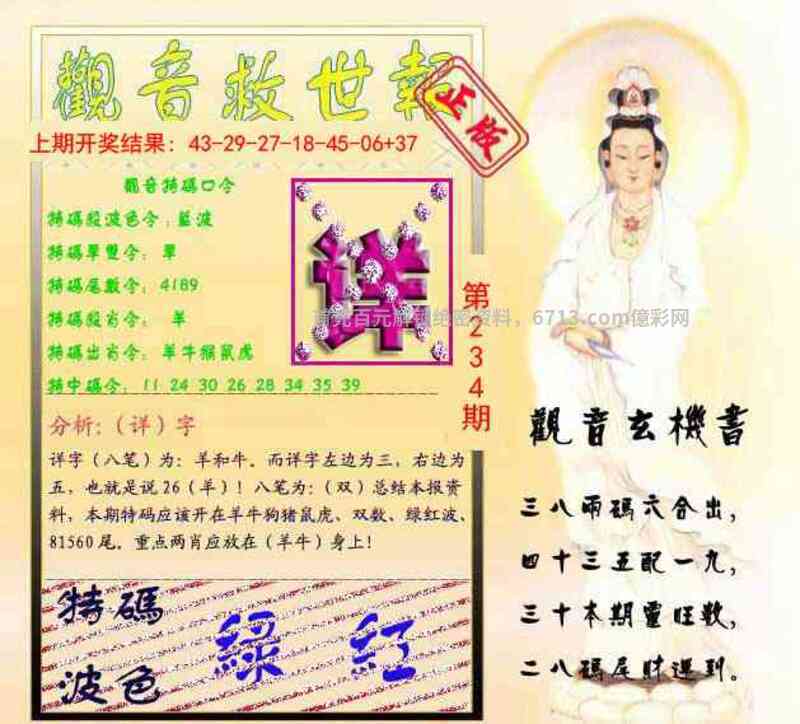 觀音救世報
正版
上期开奖结果：43-29-27-18-45-06+37
觀音特碼口令
特碼殺波色令：藍波
特碼單雙令：單
特碼尾數令：4189
特碼殺肖令：羊
特碼出肖令：羊牛猴鼠虎
特中碼令：11 24 30 26 28 34 35 39
详
百元解锁绝密资料，6713.com億彩网
第234期
分析：（详）字
详字（八笔）为：羊和牛。而详字左边为三，右边为
五，也就是说26（羊）！八笔为：（双）总结本报资
料，本期特码应该开在羊牛狗猪鼠虎、双数、绿红波、
81560尾。重点两肖应放在（羊牛）身上！
特碼
波色
綠 紅
觀音玄機書
三八兩碼六合出，
四十三五配一九，
三十本期靈旺数，
二八碼尾財運到。